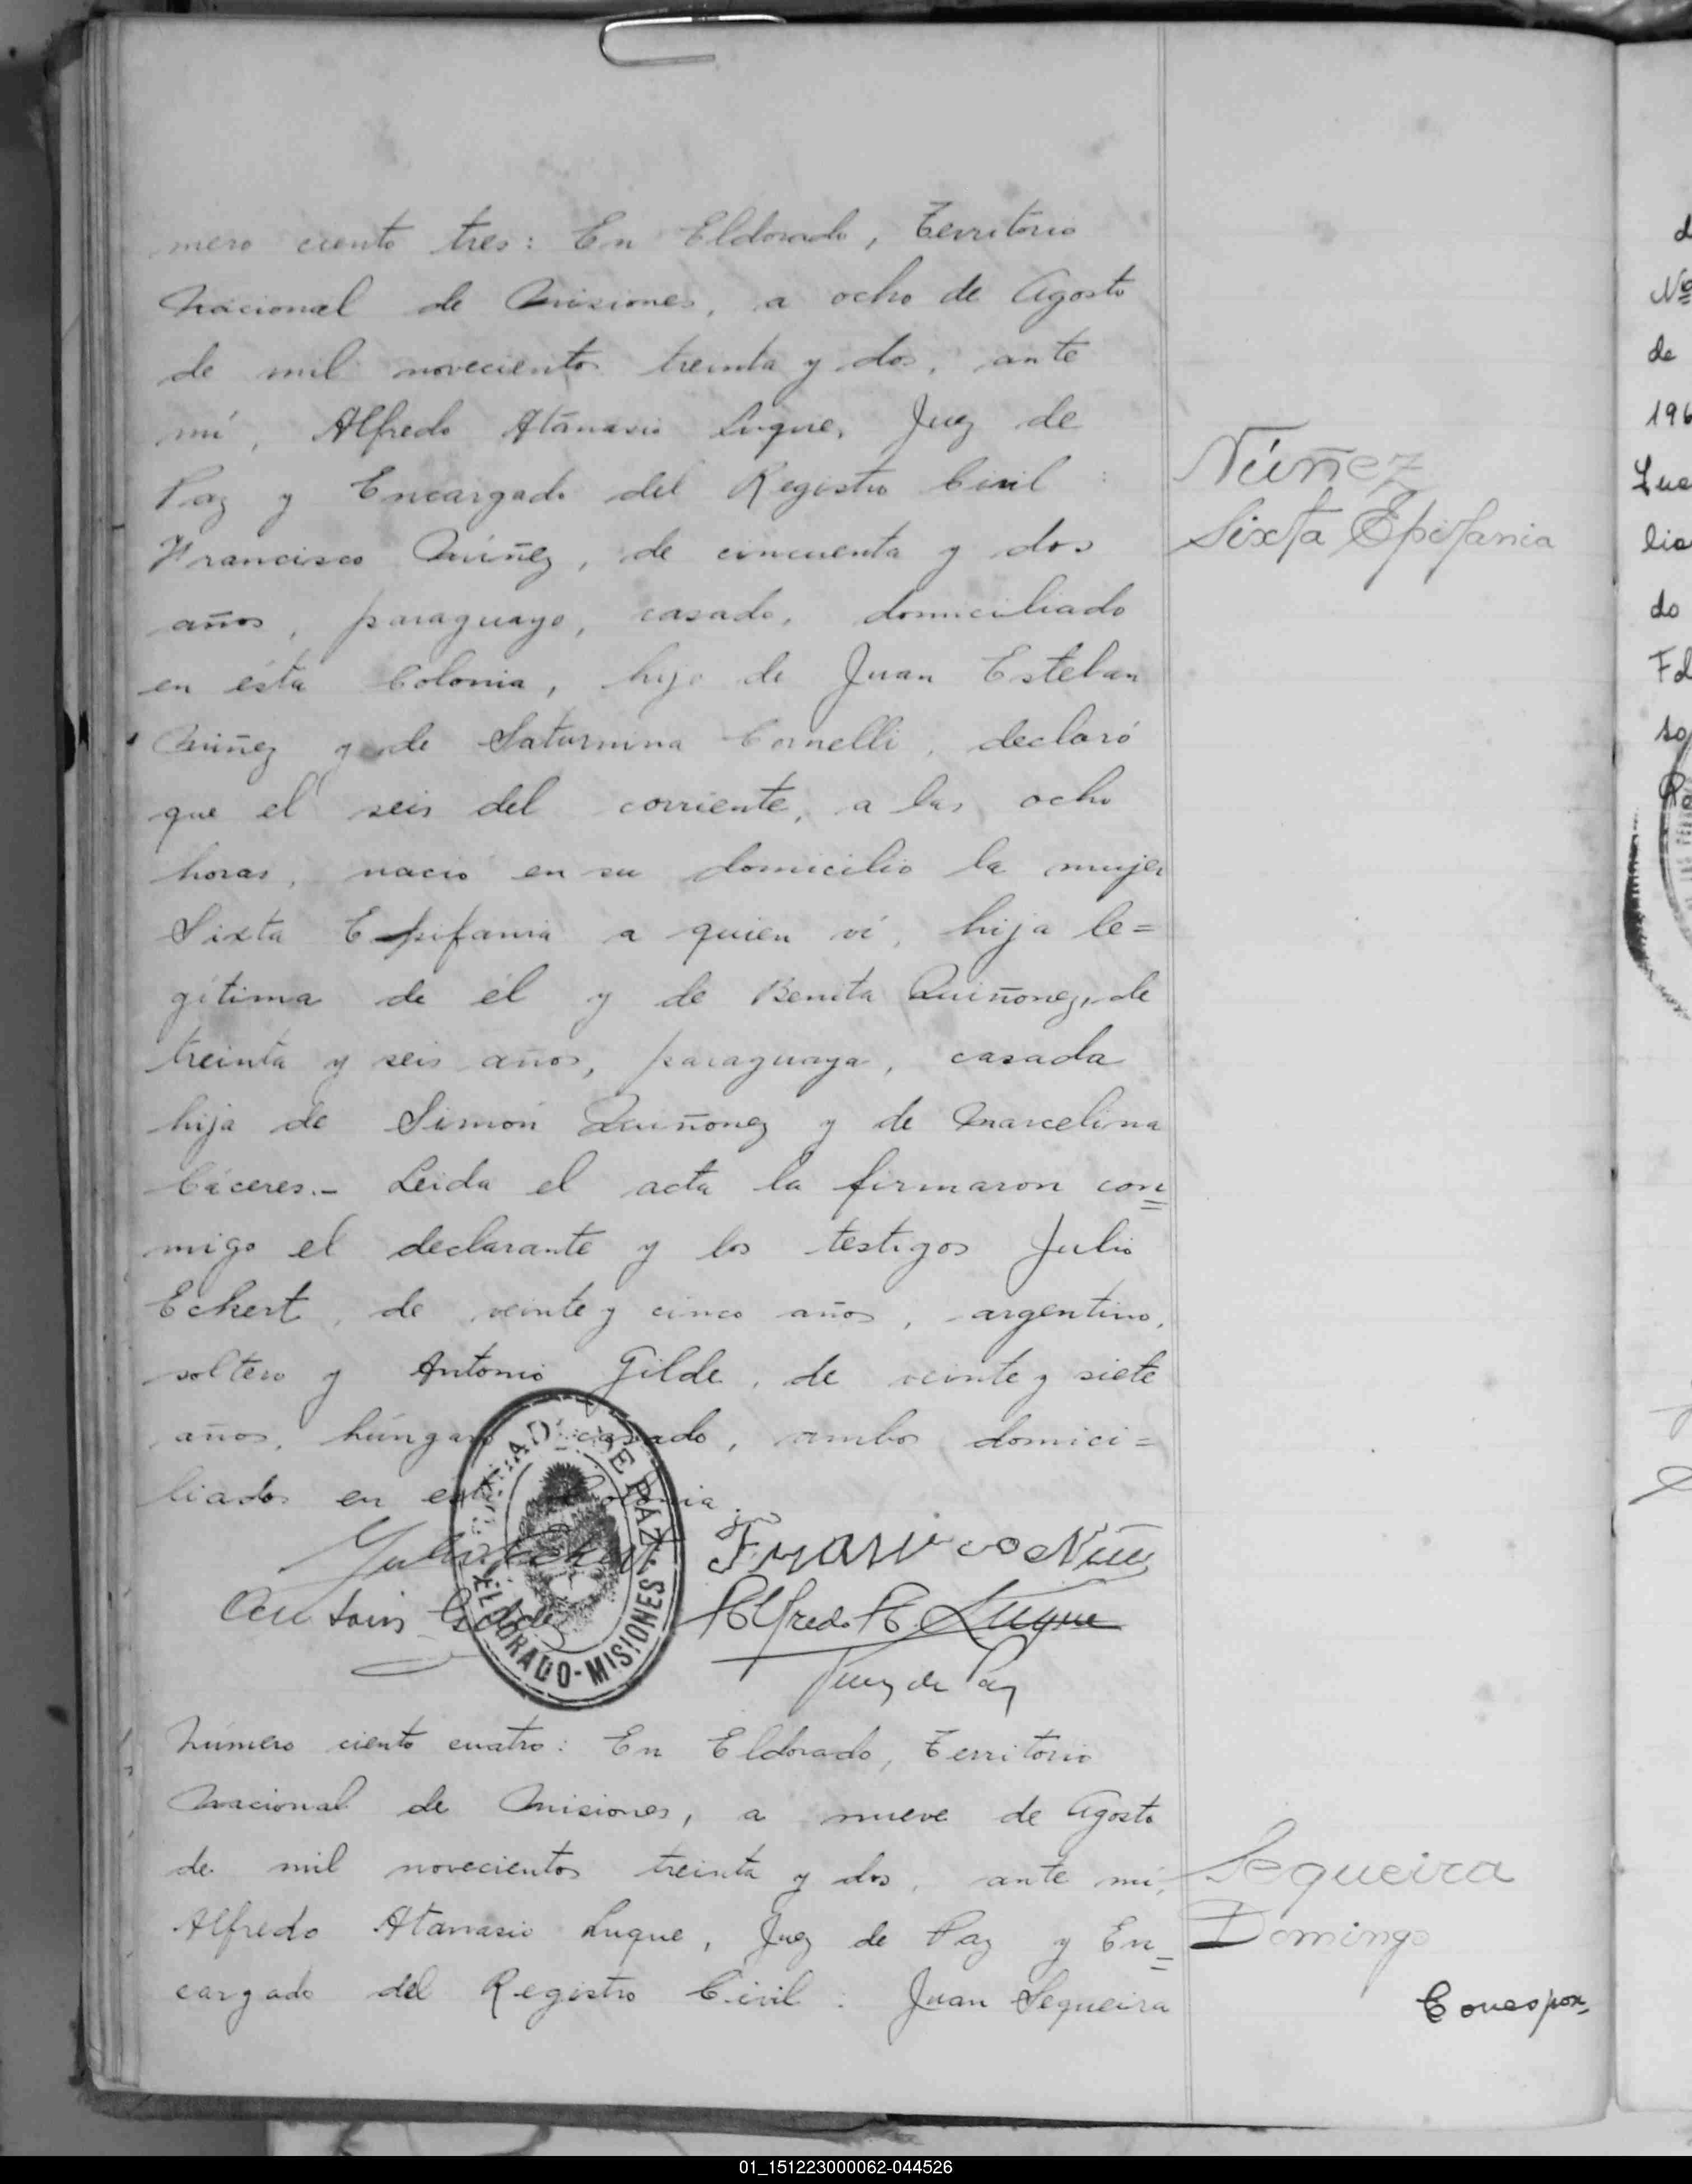 mero ciento tres: En Eldorado, Territorio
Nacional de Misiones, a ocho de Agosto
de mil novecientos treinta y dos, ante
mí, Alfredo Atanasio Luque, Juez de
Paz y Encargado del Registro Civil:
Francisco Núñez, de cincuenta y dos
años, paraguayo, casado, domiciliado
en ésta Colonia, hijo de Juan Esteban
Núñez y de Saturnina Cornelli, declaró
que el seis del corriente, a las ocho
horas, nació en su domicilio la mujer
Sixta Epifania a quien ví, hija le=
gítima de él y de Benita Quiñonez, de
treinta y seis años, paraguaya, casada
hija de Simón Quiñonez y de Marcelina
Cáceres.- Leida el acta la firmaron con=
migo el declarante y los testigos Julio
Eckert, de veinte y cinco años, argentino,
soltero y Antonio Gilde, de veinte y siete
años, húngaro casado, ambos domici=
liados en ésta Colonia.
Núñez
Sixta Epifania
Julio Eckert
Francisco Núñez
Alfredo A. Luque
Juez de Paz
DE PAZ
ELDORADO-MISIONES
Número ciento cuatro: En Eldorado, Territorio
Nacional de Misiones, a nueve de Agosto
de mil novecientos treinta y dos, ante mí,
Alfredo Atanasio Luque, Juez de Paz y En=
cargado del Registro Civil: Juan Sequeira
Sequeira
Domingo
Correspon=
d
Nº
de
196
Lue
lia
do
Fd
so
01_151223000062-044526